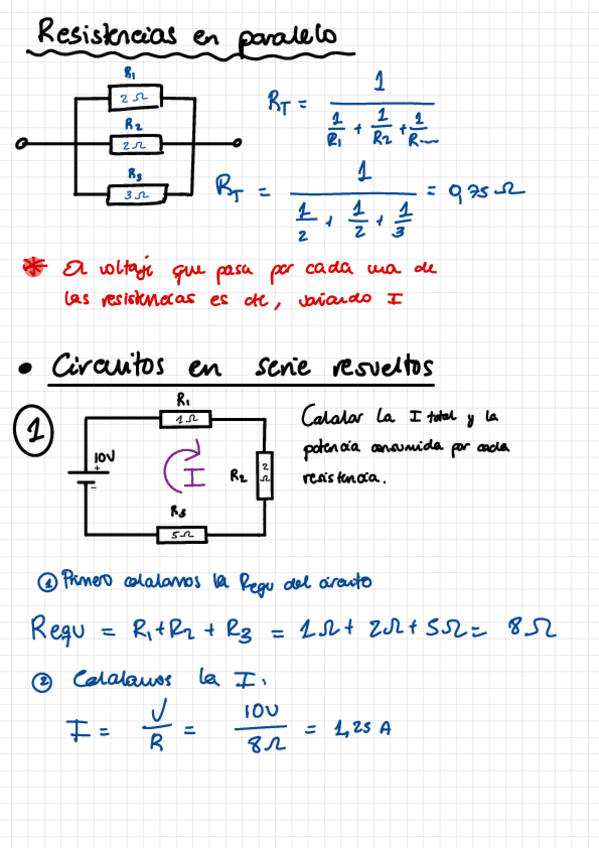 Resistencias en paralelo
R1
2Ω
R2
2Ω
R3
3Ω
RT = 1 / (1/R1 + 1/R2 + 1/R...)
RT = 1 / (1/2 + 1/2 + 1/3) = 0,75 Ω
* El voltaje que pasa por cada una de
las resistencias es cte, variando I
• Circuitos en serie resueltos
1
R1
1Ω
10V
+
-
I
R2
2Ω
R3
5Ω
Calcular la I total y la
potencia consumida por cada
resistencia.
① Primero calculamos la Requ del circuito
Requ = R1+R2 + R3 = 1Ω + 2Ω + 5Ω = 8Ω
② Calculamos la I.
I = V/R = 10V/8Ω = 1,25 A